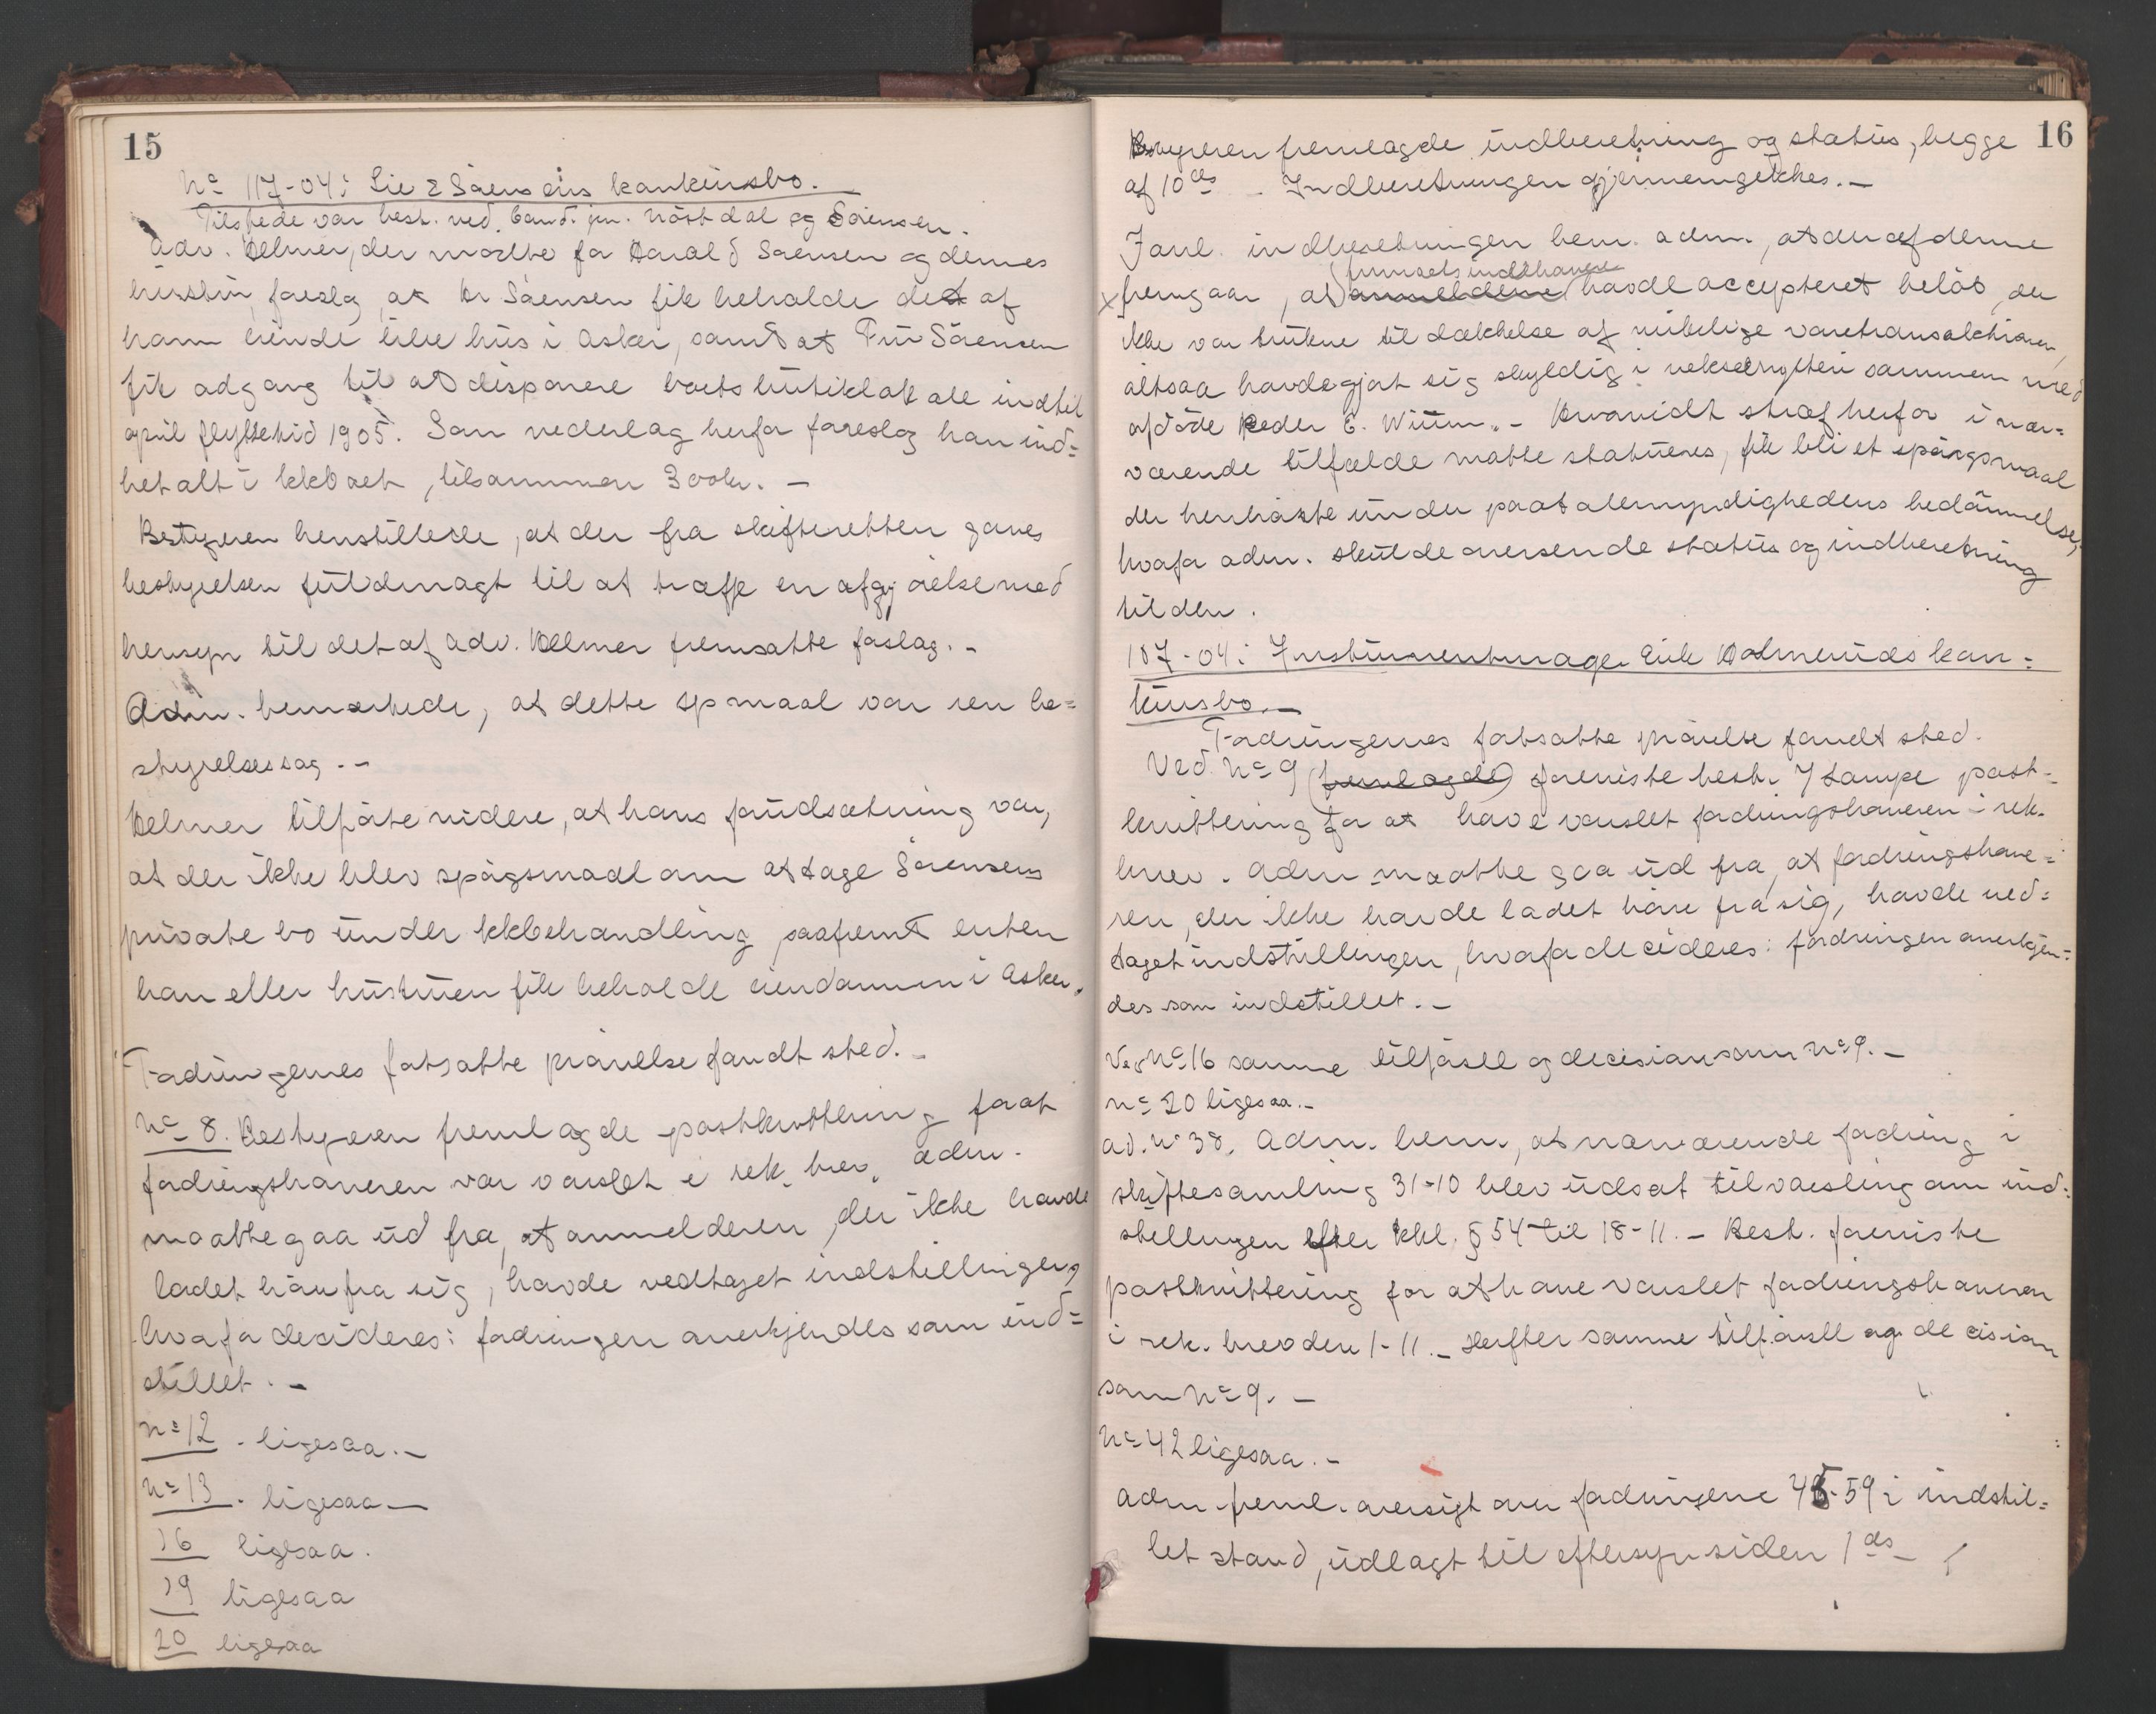 15
No 117-04: Lie & Sørensens konkursbo.
Tilstede var best. ved. Cand. jur. Nöstdal og Sörensen.
Adv. Helmer, der mødte for Harald Sørensen og dennes
hustru, foreslog, at Hr Sörensen fik beholde det af
ham eiende lille hus i Asker, samt at Fru Sörensen
fik adgang til at disponere boets butiklokale indtil
april flyttetid 1905. Som vederlag herfor foreslog han ind-
betalt i kkboet, tilsammen 300 kr. -
Bestyreren henstillede, at der fra skifteretten gaves
bestyrelsen fuldmagt til at træffe en afgjörelse med
hensyn til det af adv. Helmer fremsatte forslag. -
Adm. bemærkede, at dette spmaal var ren be-
styrelsessag. -
Helmer tilföiede videre, at hans forudsætning var,
at der ikke blev spörgsmaal om at tage Sörensens
private bo under kkbehandling, saafremt enten
han eller hustruen fik beholde eiendommen i Asker.
Fordringernes fortsatte prövelse fandt sted. -
No 8. Bestyreren fremlagde postkvittering for at
fordringshaveren var varslet i rek. brev. Adm.
maatte gaa ud fra, at anmelderen, der ikke havde
ladet höre fra sig, havde vedtaget indstillingen,
hvorfor decideres: fordringen anerkjendes som ind-
stillet. -
No 12. ligesaa. -
No 13. ligesaa -
16 ligesaa.
19 ligesaa
20 ligesaa
16
Bestyreren fremlagde indberetning og status, begge
af 10 ds. Indberetningen gjennemgikkes. -
I anl. indberetningen bem. adm., at der af denne
firmaets indehavere
x fremgaar, at anmelderne havde accepteret belöb, der
ikke var trukne til dækkelse af virkelige varetransaktioner,
altsaa havde gjort sig skyldig i vekselrytteri sammen med
afdöde Peder E. Wium. - Hvorvidt straf herfor i nær-
værende tilfælde matte statueres, fik bli et spörgsmaal
der henhörte under paatalemyndighedens bedömmelse,
hvorfor adm. skulde oversende status og indberetning
til den.
107-04: Instrumentmager Eirik Holmeruds kon-
kursbo. -
Fordringernes fortsatte prövelse fandt sted.
Ved No 9 (fremlagde) foreviste best. Stampe post-
kvittering for at have varslet fordringshaveren i rek.
brev. Adm maatte gaa ud fra, at fordringshave-
ren, der ikke havde ladet höre fra sig, havde ved-
taget indstillingen, hvorfor decideres: fordringen anerkjen-
des som indstillet. -
Ved No 16 samme tilförsel og decision som No 9. -
No 20 ligesaa. -
ad. No 38. Adm. bem., at nærværende fordring i
skiftesamling 31-10 blev udsat til varsling om ind-
stillingen efter kkl. § 54 til 18-11. - Best. foreviste
postkvittering for at have varslet fordringshaveren
i rek. brev den 1-11. - Herefter samme tilförsell og decision
som No 9. -
No 42 ligesaa. -
Adm. freml. oversigt over fordringene 45-59 i indstil-
let stand, udlagt til eftersyn siden 1 ds -